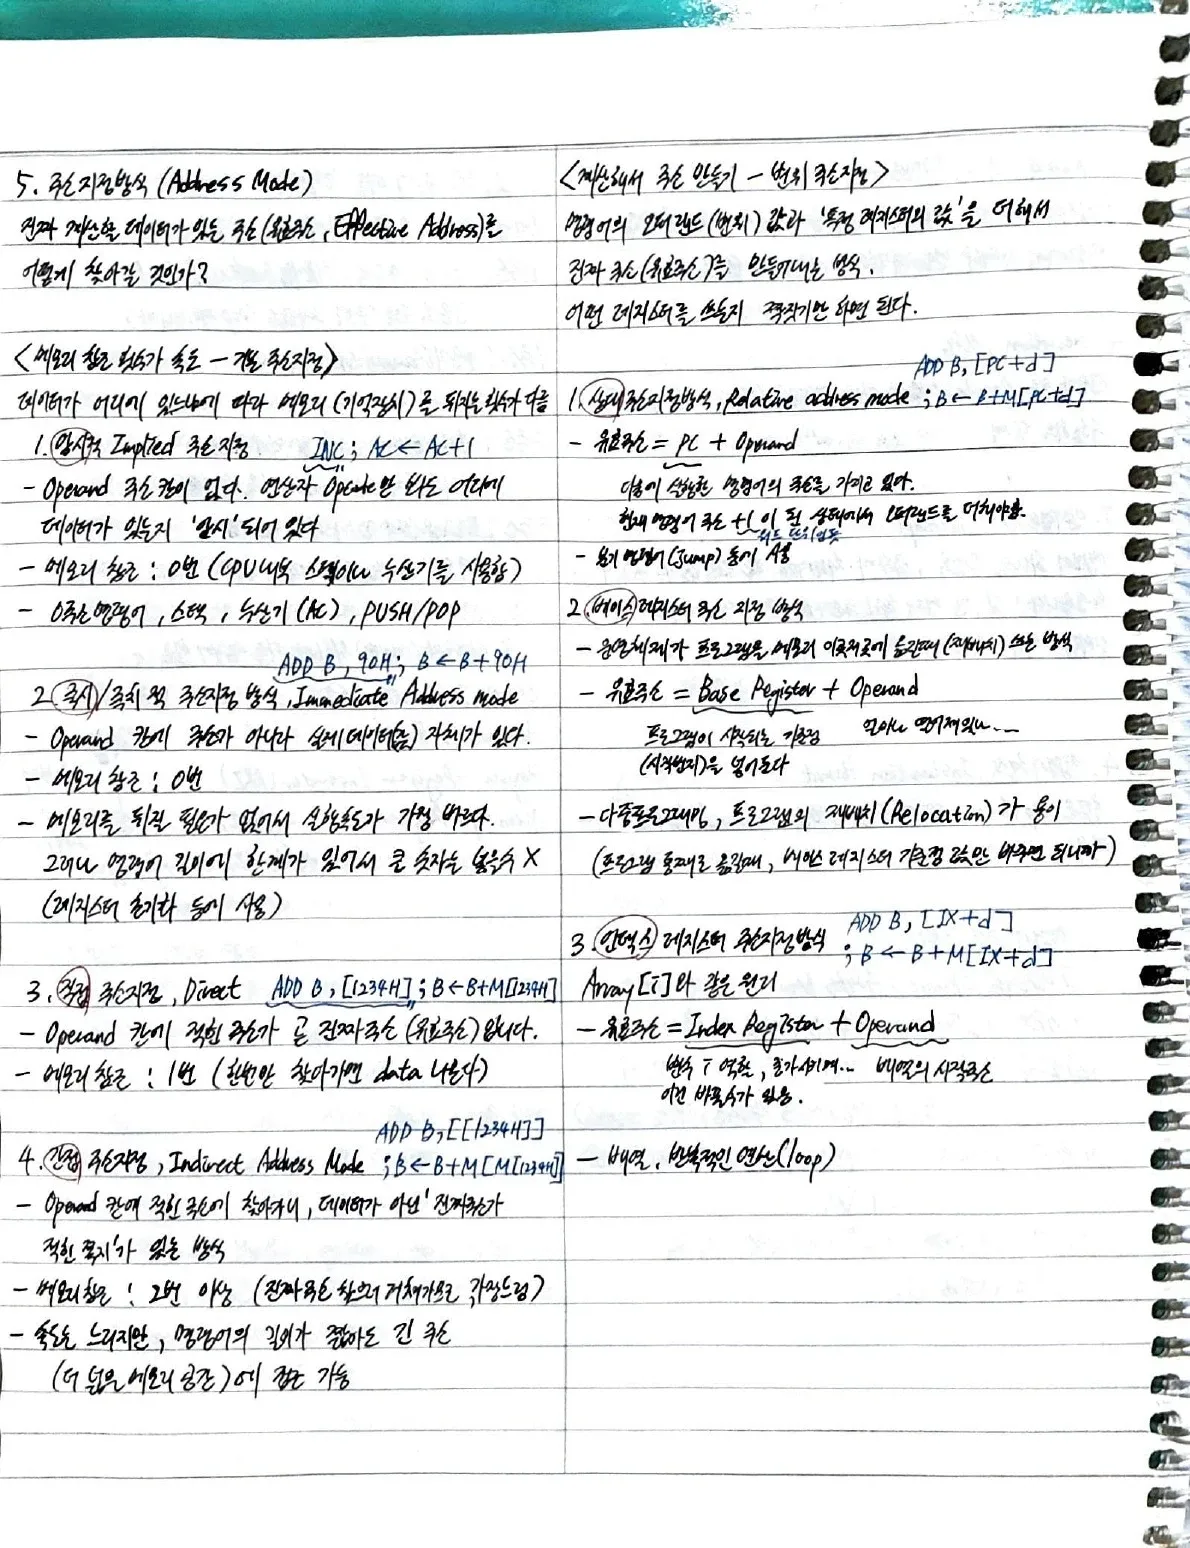 5. 주소지정방식 (Address Mode)
진짜 계산할 데이터가 있는 주소(유효주소, Effective Address)를
어떻게 찾아갈 것인가?
<메모리 참조 횟수가 속도 - 기본 주소지정>
데이터가 어디에 있느냐에 따라 메모리(기억장치)를 뒤지는 횟수가 다름
1. 암시적 Implied 주소지정 INC ; AC ← AC+1
- Operand 주소 칸이 없다. 연산자 Opcode만 봐도 어디에
데이터가 있는지 '암시'되어 있다
- 메모리 참조 : 0번 (CPU내부 스택이나 누산기를 사용함)
- 0주소명령어, 스택, 누산기(AC), PUSH/POP
ADD B, 90H ; B ← B+90H
2. 즉시/즉치적 주소지정 방식, Immediate Address mode
- Operand 칸에 주소가 아니라 실제 데이터(값) 자체가 있다.
- 메모리 참조 : 0번
- 메모리를 뒤질 필요가 없어서 실행속도가 가장 빠르다.
그러나 명령어 길이에 한계가 있어서 큰 숫자는 넣을수 X
(레지스터 초기화 등에 사용)
3. 직접 주소지정, Direct ADD B, [1234H] ; B←B+M[1234H]
- Operand 칸에 적힌 주소가 곧 진짜주소(유효주소)입니다.
- 메모리 참조 : 1번 (한번만 찾아가면 data 나온다)
ADD B, [[1234H]]
4. 간접 주소지정, Indirect Address Mode ; B←B+M[M[1234H]]
- Operand 칸에 적힌 주소에 찾아가니, 데이터가 아닌 '진짜주소가
적힌 쪽지'가 있는 방식
- 메모리참조 : 2번 이상 (진짜주소 찾으러 거쳐가므로 가장느림)
- 속도는 느리지만, 명령어의 길이가 짧아도 긴 주소
(더 넓은 메모리 공간)에 접근 가능
<계산해서 주소 만들기 - 변위 주소지정>
명령어의 오퍼랜드(변위) 값과 '특정 레지스터의 값'을 더해서
진짜 주소(유효주소)를 만들어내는 방식.
어떤 레지스터를 쓰는지 짝짓기만 하면 된다.
ADD B, [PC+d]
1. 상대주소지정방식, Relative address mode ; B ← B+M[PC+d]
- 유효주소 = PC + Operand
다음에 실행할 명령어의 주소를 가지고 있다.
현재 명령어 주소 +1 이 된 상태에서 오퍼랜드를 더해야함.
- 분기 명령어(Jump) 등에 사용
2. 베이스 레지스터 주소 지정 방식
- 운영체제가 프로그램을 메모리 이곳저곳에 옮길때 (재배치) 쓰는 방식
- 유효주소 = Base Register + Operand
프로그램이 시작되는 기준점 얼마나 떨어져있나...
(시작번지)을 넣어둔다
- 다중프로그래밍, 프로그램의 재배치(Relocation)가 용이
(프로그램 통째로 옮길때, 베이스 레지스터 기준점 값만 바꾸면 되니까)
ADD B, [IX+d]
3. 인덱스 레지스터 주소지정방식 ; B ← B+M[IX+d]
Array[i]와 같은 원리
- 유효주소 = Index Register + Operand
변수 i 역할, 증가시키며... 배열의 시작주소
이건 바뀔수가 있음.
- 배열, 반복적인 연산(loop)